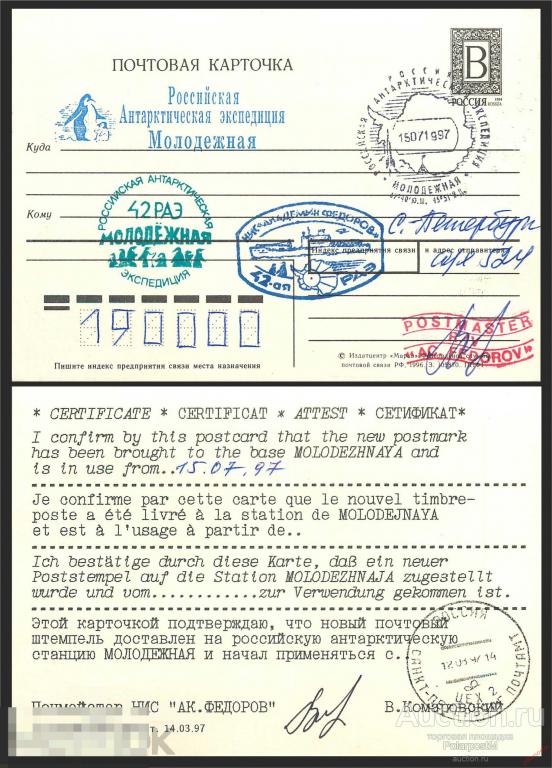 ПОЧТОВАЯ КАРТОЧКА
B
РОССИЯ
Российская
Антарктическая экспедиция
Молодежная
РОССИЙСКАЯ АНТАРКТИЧЕСКАЯ ЭКСПЕДИЦИЯ
15071997
МОЛОДЕЖНАЯ
Куда
РОССИЙСКАЯ АНТАРКТИЧЕСКАЯ
42 РАЭ
МОЛОДЕЖНАЯ
ЭКСПЕДИЦИЯ
Кому
АКАДЕМИК ФЕДОРОВ
42-ая РАЭ
С. Петербург
Индекс предприятия связи и адрес отправителя
190000
Пишите индекс предприятия связи места назначения
POSTMASTER
R/V
"AC. FEDOROV"
© Издатцентр «Марка»
почтовой связи РФ, 1996. З.
* CERTIFICATE * CERTIFICAT * ATTEST * СЕТИФИКАТ*
I confirm by this postcard that the new postmark
has been brought to the base MOLODEZHNAYA and
is in use from..15.07.97
Je confirme par cette carte que le nouvel timbre-
poste a été livré à la station de MOLODEJNAYA
et est à l'usage à partir de..
Ich bestätige durch diese Karte, daß ein neuer
Poststempel auf die Station MOLODEZHNAJA zugestellt
wurde und vom............zur Verwendung gekommen ist.
Этой карточкой подтверждаю, что новый почтовый
штемпель доставлен на российскую антарктическую
станцию МОЛОДЕЖНАЯ и начал применяться с..
РОССИЯ
12.03.97 14
ЦЕХ 2
ПОЧТАМТ
Почмейстер НИС "АК.ФЕДОРОВ" В.Комаровский
14.03.97
Auction.ru
торговая площадка
PolarpostM
auction.ru